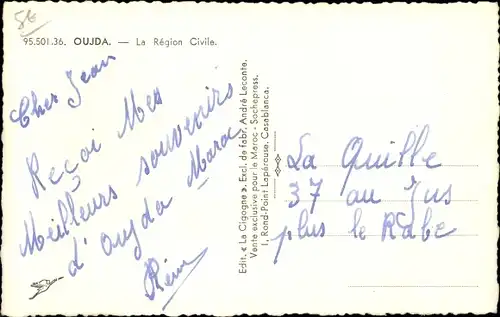 95.501.36. OUJDA. — La Région Civile.
Cher Jean
Reçoi Mes
Meilleurs souvenirs
d'oujda Maroc
Rémy
Edit. « La Cigogne ». Excl. de fabr. André Leconte.
Vente exclusive pour le Maroc - Sochepress.
1, Rond-Point Lapérouse. Casablanca.
La Quille
37 au Jus
plus le Rabe